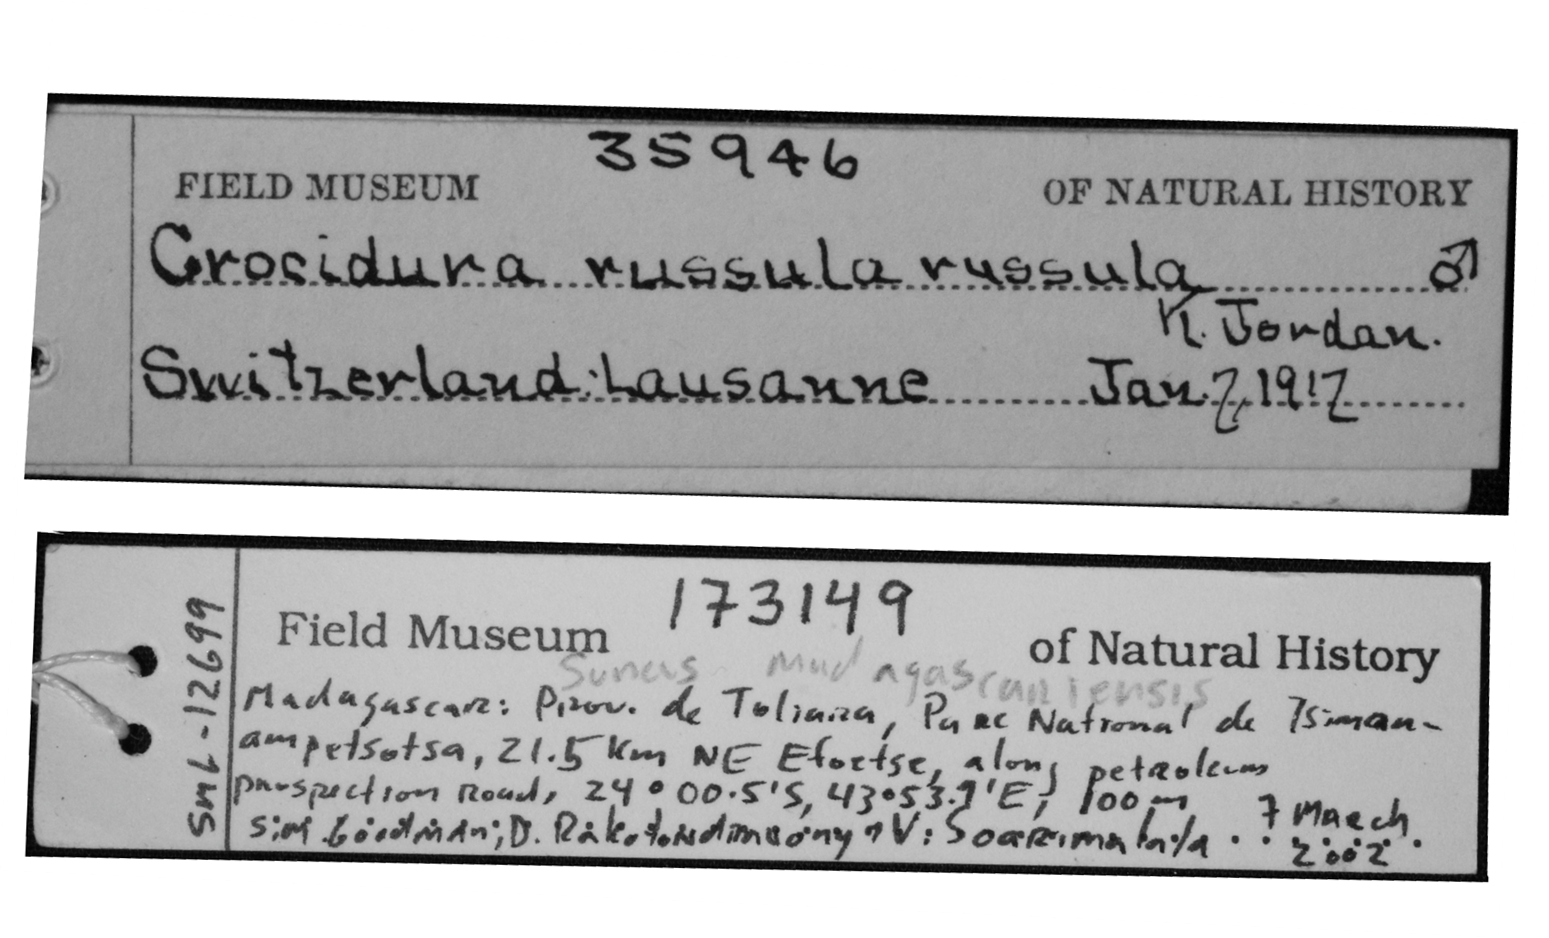 35946
FIELD MUSEUM OF NATURAL HISTORY
Crocidura russula russula ♂
K. Jordan.
Switzerland: Lausanne Jan. 7, 1917
173149
Field Museum of Natural History
Suncus madagascariensis
Madagascar: Prov. de Toliara, Parc National de Tsiman-
ampetsotsa, 21.5 km NE Efoetse, along petroleum
prospection road, 24°00.5'S, 43°53.9'E, 100 m 7 March
S.M. Goodman; D. Rakotondravony & V. Soarimalala 2002
SML-12699